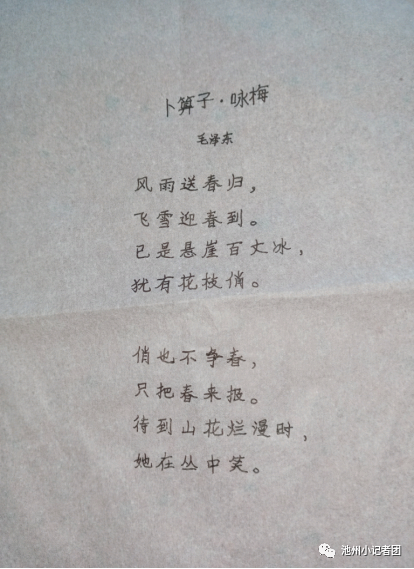 卜算子·咏梅
毛泽东
风雨送春归，
飞雪迎春到。
已是悬崖百丈冰，
犹有花枝俏。
俏也不争春，
只把春来报。
待到山花烂漫时，
她在丛中笑。
池州小记者团